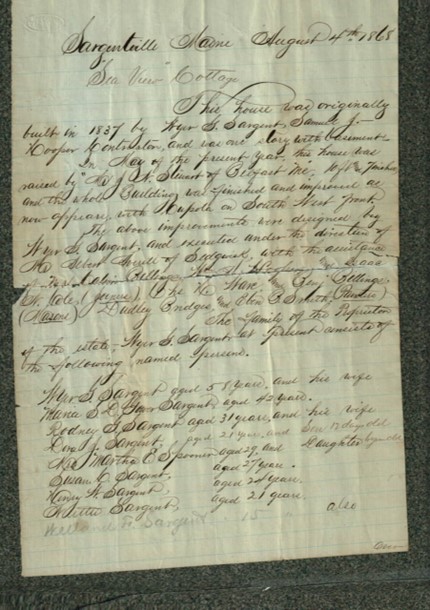 Sargentville Maine August 4th 1868
"Sea View" Cottage
This house was originally
built in 1837 by Wyer G. Sargent, Samuel J.
Cooper Contractor, and was one story with basement
In May of the present year, this house was
raised by Mr J. N. Stewart of Belfast Me,
and the whole Building was finished and improved as
now appears, with Cupola on South West front,
The above improvements were designed by
Wyer G. Sargent, and executed under the direction of
Mr of Sedgwick, with the assistance
of
(Mason) Dudley Bridges and Eben B Smith, (Painters)
The Family of the Proprietor
of the estate - Wyer G. Sargent, at present consists of
the following named persons.
Wyer G. Sargent aged 58 years, and his wife
Maria S D Sargent, aged 42 years.
Rodney S Sargent aged 31 years, and his wife
J. Sargent, aged 21 years, and Son 18 days old
Mrs Martha C Spooner aged 29, and Daughter
Susan C. Sargent, aged 27 years.
Henry W Sargent, aged 24 years.
Nettie Sargent, aged 21 years.
Sargent 15 " also
Over